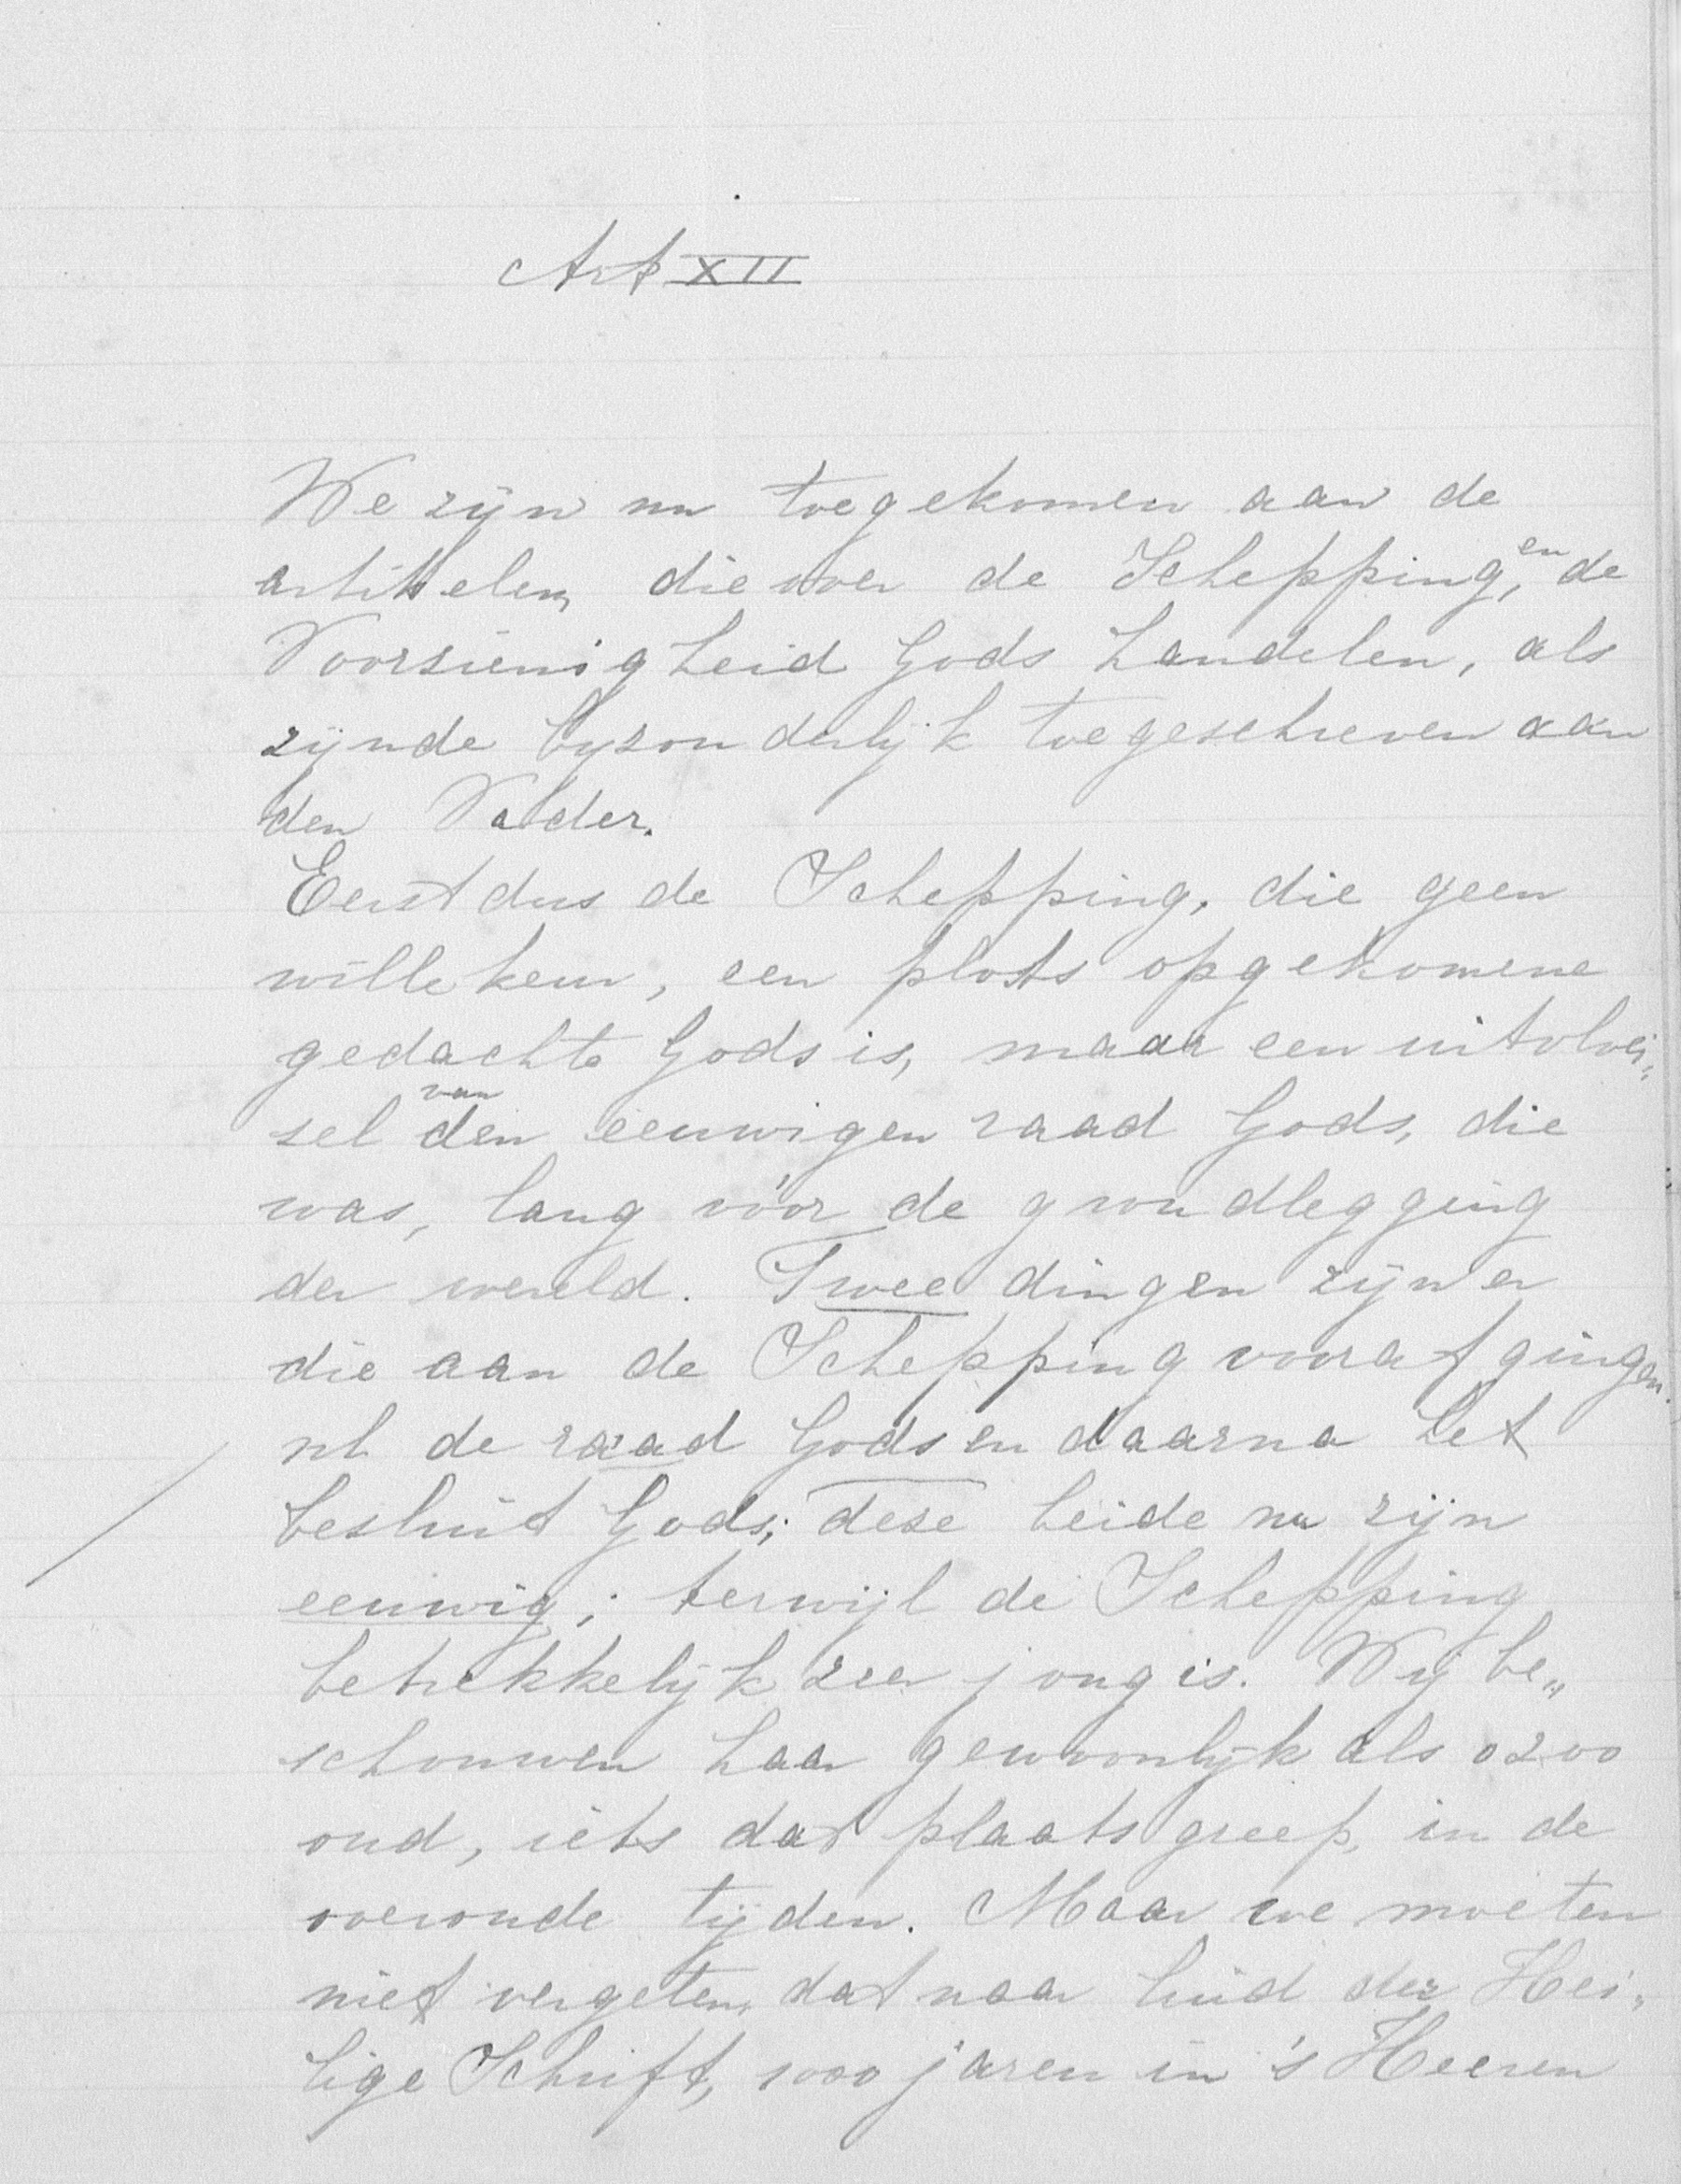 Art XII
We zijn nu toegekomen aan de
artikelen, die over de Schepping, en de
Voorzienigheid Gods handelen, als
zijnde byzonderlijk toegeschreven aan
den Vader.
Eerst dus de Schepping, die geen
willekeur, een plots opgekomene
gedachte Gods is, maar een uitvloei„
sel van den eeuwigen raad Gods, die
was, lang vóór de grondlegging
der wereld. Twee dingen zijn er
die aan de Schepping vooraf gingen.
nl de raad Gods en daarna het
besluit Gods; deze beide nu zijn
eeuwig; terwijl de Schepping
betrekkelijk zeer jong is. Wij be„
schouwen haar gewoonlijk als ozoo
oud, iets dat plaats greep, in de
overoude tijden. Maar we moeten
niet vergeten, dat naar luid der Hei„
lige Schrift, 1000 jaren in 's Heeren